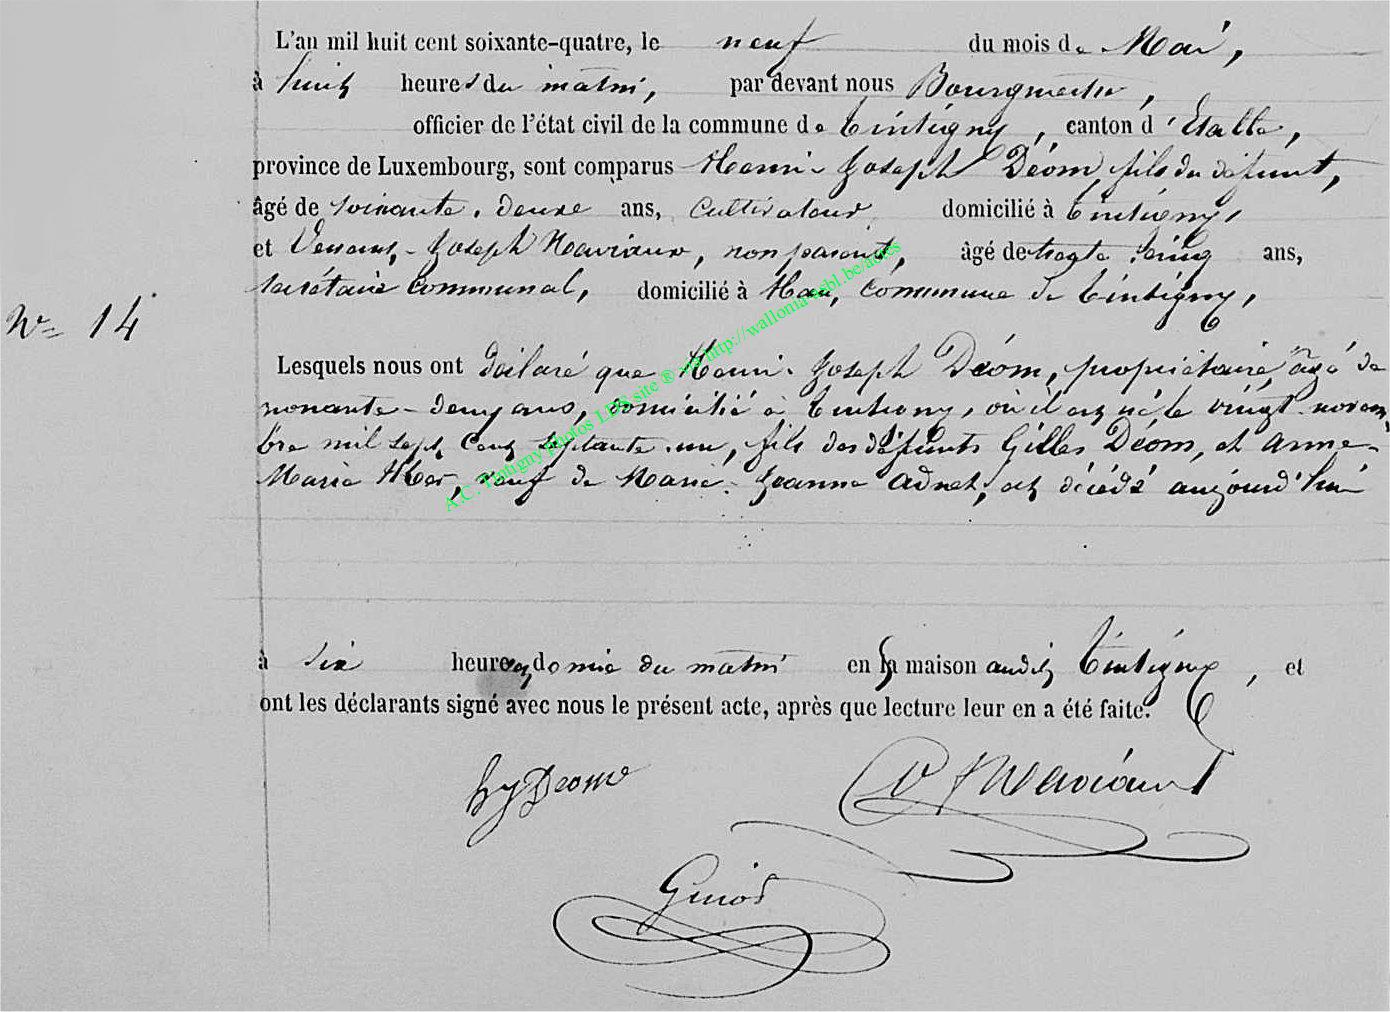 L'an mil huit cent soixante-quatre, le neuf du mois de Mai,
à huit heures du matin, par devant nous Bourgmestre,
officier de l'état civil de la commune de Tintigny, canton d'Etalle,
province de Luxembourg, sont comparus Henri-Joseph Déom, fils du défunt,
âgé de soixante-deuxe ans, cultivateur domicilié à Tintigny,
et Joseph Maviaux, non parent, âgé de trente cinq ans,
secrétaire communal, domicilié à Han, commune de Tintigny,
N° 14
Lesquels nous ont déclaré que Henri-Joseph Déom, propriétaire, âgé de
nonante-deux ans, domicilié à Tintigny, où il est né le vingt novem-
bre mil sept cent septante-un, fils des défunts Gilles Déom, et Anne-
Marie, veuf de Marie-Jeanne Adnet, est décédé aujourd'hui
à six heures et demie du matin en sa maison audit Tintigny, et
ont les déclarants signé avec nous le présent acte, après que lecture leur en a été faite.
hy Deome
V J Maviaux
A.C. Tintigny photos LDS site ® via http://wallonia-asbl.be/actes